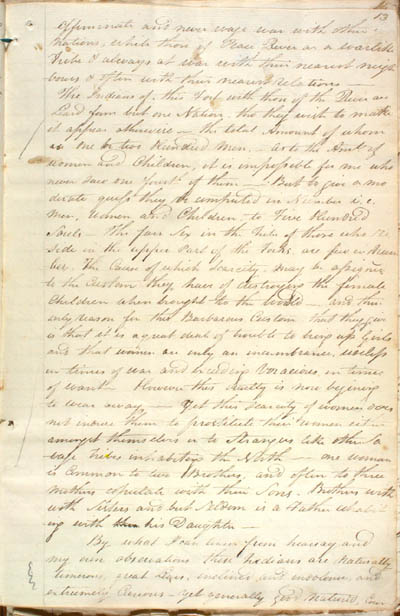 13
Effeminate and never wage war with other
Nations, while those of Peace River are a warlike
Tribe & always at war with their nearest neigh
bours & often with their nearest relations —
The Indians of this Fort with those of the River are
Said form but one Nation, tho they wish to make
it appear otherwise — the total Amount of whom
is one or two Hundred Men. — As to the Amt of
women and Children, it is impossible for me who
never saw one fourth of them — But to give a mo
derate guess they be computed in Number i.e.
Men, Women and Children to Five Hundred
Souls — The fair Sex in the Tribe of those who re
side in the upper Part of the Forks are few in Num
ber. The Cause of which Scarcity may be assigned
to the Custom they have of destroying the female
Children when brought to the World — and their
only reason for this Barbarous Custom that they give
is that it is a great deal of trouble to bring up Girls
and that women are only an incumbrance, useless
in times of war and exceeding Voracious in times
of want — However this Cruelty is now begining
to wear away — Yet this Scarcity of women does
not induce them to prostitute their women either
amongst themselves or to Strangers like other Sa
vage Tribes inhabiting the North — one woman
is Common to two Brothers, and often to three
mothers copulate with their Sons. Brothers with
with Sisters and but Seldom is a Father cohabit
ing with his Daughter —
By what I can learn from hearsay and
my own observations these Indians are Naturally
timorous, great inclined and indolence, and
extremely Curious — Yet generally good Natured,